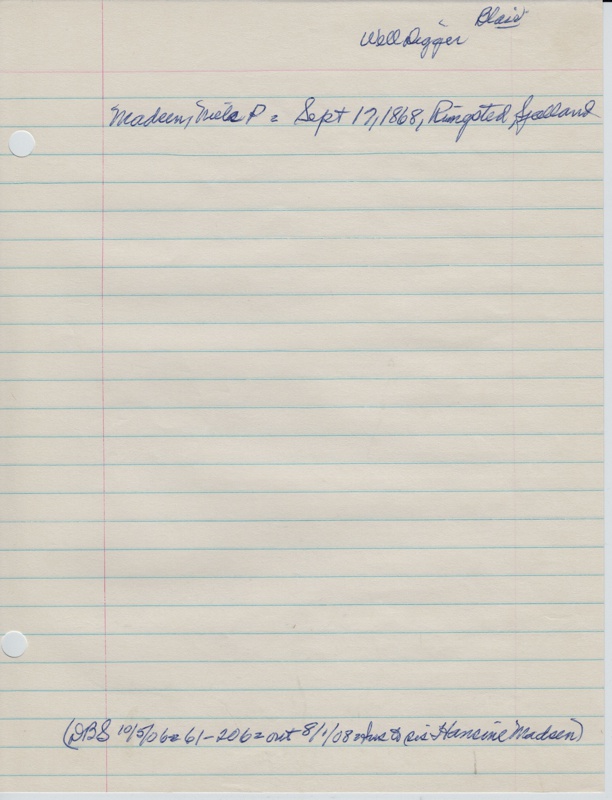 Blair
Well Digger
Madsen, Niels P = Sept 17, 1868, Ringsted Sjælland
(DBS 10/5/06 = 61-206 = out 8/1/08 = ins to sis Hansine Madsen)